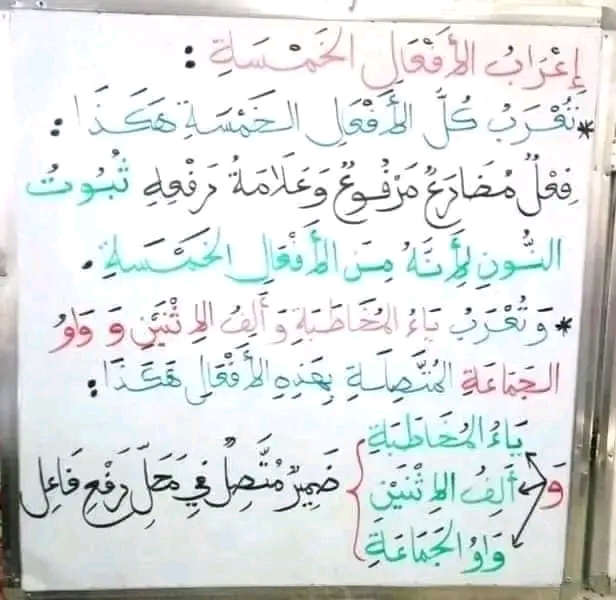 إِعْرَابُ الأَفْعَالِ الخَمْسَةِ :
* تُعْرَبُ كُلُّ الأَفْعَالِ الخَمْسَةِ هَكَذَا :
فِعْلٌ مُضَارِعٌ مَرْفُوعٌ وَعَلَامَةُ رَفْعِهِ ثُبُوتُ
النُّونِ لِأَنَّهُ مِنَ الأَفْعَالِ الخَمْسَةِ .
* وَتُعْرَبُ يَاءُ المُخَاطَبَةِ وَأَلِفُ الاِثْنَيْنِ وَ وَاوُ
الجَمَاعَةِ المُتَّصِلَةِ بِهَذِهِ الأَفْعَالِ هَكَذَا :
يَاءُ المُخَاطَبَةِ
وَ أَلِفُ الاِثْنَيْنِ ضَمِيرٌ مُتَّصِلٌ فِي مَحَلِّ رَفْعِ فَاعِل
وَاوُ الجَمَاعَةِ